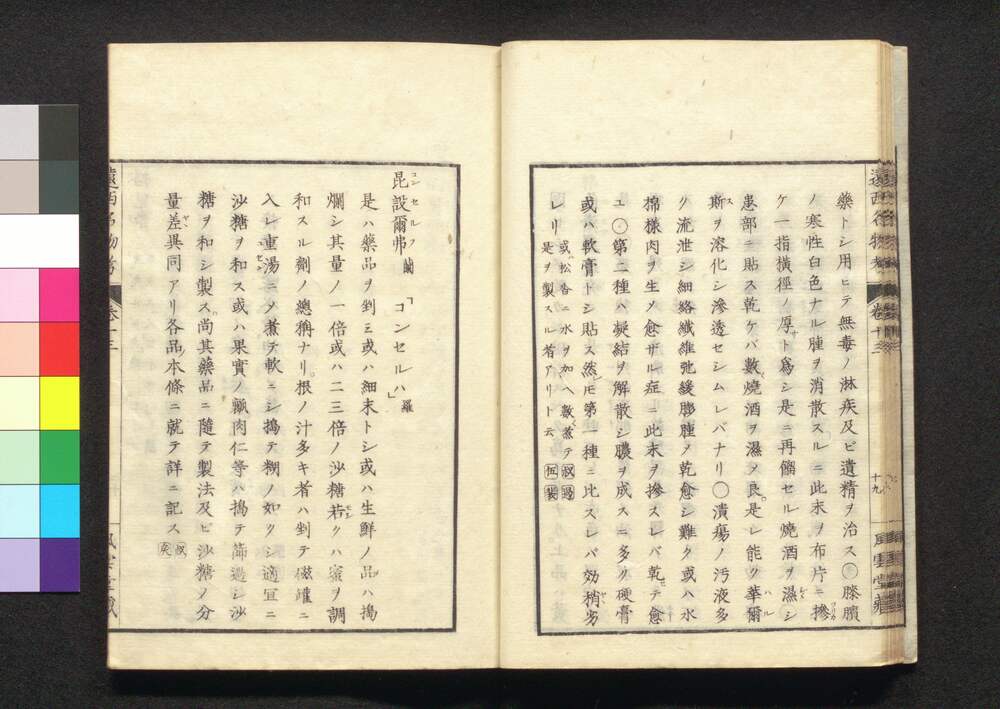 藥トシ用ヒテ無毒ノ淋疾及ビ遺精ヲ治ス〇膝臏
ノ寒性白色ナル腫ヲ消散スルニ此末ヲ布片ニ摻
ケ一指横徑ノ厚サト爲シ是ニ再餾セル燒酒ヲ濕シ
患部ニ貼ス乾ケバ數燒酒ヲ濕メ良是レ能ク華爾
斯ヲ溶化シ滲透セシムレバナリ〇潰瘍ノ汚液多
ク流泄シ細絡纖維弛緩膨腫メ乾愈シ難ク或ハ水
棉樣肉ヲ生メ愈ザル症ニ此末ヲ摻スレバ乾テ愈
ユ〇第二種ハ凝結ヲ解散シ膿ヲ成スニ多ク硬膏
或ハ軟膏トシ貼ス然ドモ第一種ニ比スレバ効稍劣
レリ 或ハ松香ニ水ヲ加ヘ數蒸テ
是ヲ製スル者アリト云
遠西名物考 卷十三 十九 風雲堂藏
昆設爾弗 蘭 「コンセルハ」 羅
コンセルフ
是ハ藥品ヲ刲ミ或ハ細末トシ或ハ生鮮ノ品ハ搗
爛シ其量ノ一倍或ハ二三倍ノ沙糖若クハ蜜ヲ調
和スル劑ノ總稱ナリ根ノ汁多キ者ハ刲テ磁罐ニ
入レ重湯ニメ煮テ軟ニシ搗テ糊ノ如クシ適宜ニ
沙糖ヲ和ス或ハ果實ノ瓤肉仁等ハ搗テ篩過シ沙
糖ヲ和シ製ス尚其藥品ニ隨テ製法及ビ沙糖ノ分
量差異同アリ各品本條ニ就テ詳ニ記ス
遠西名物考 卷十三